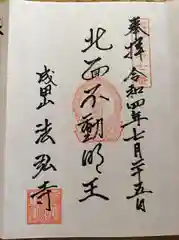 奉拝 令和四年七月二十五日
北面不動明王
成田山 法弘寺